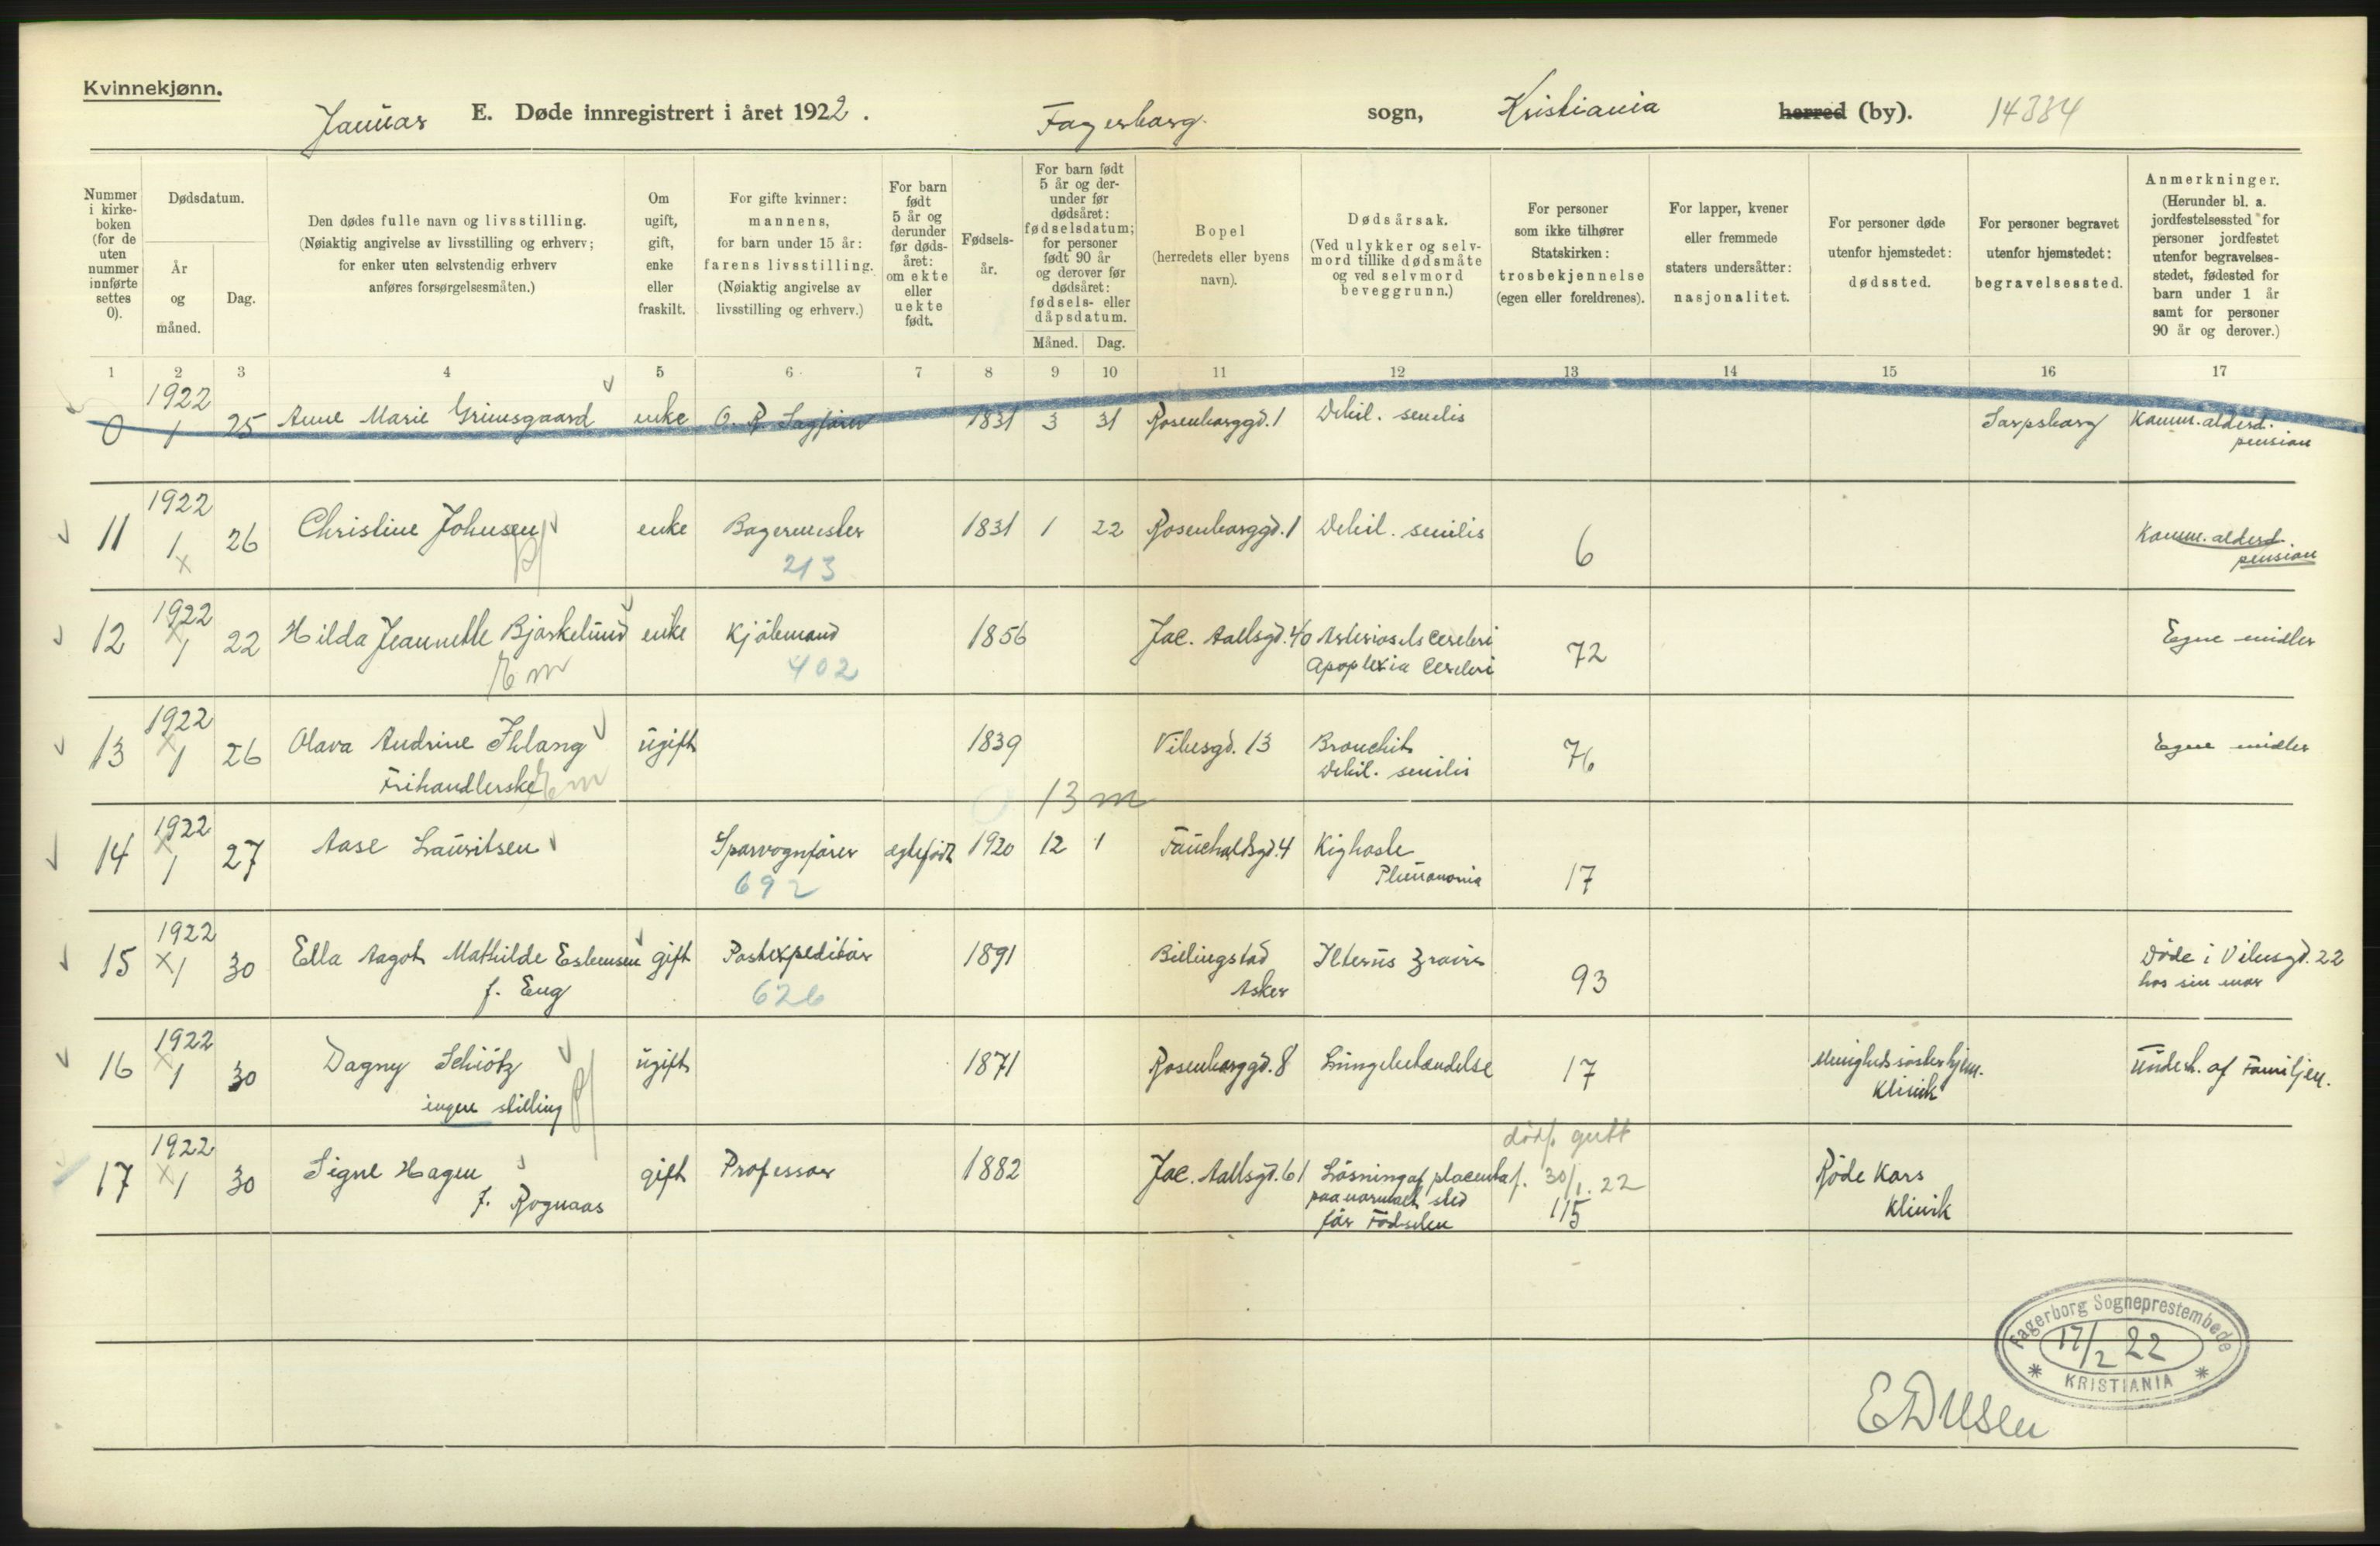 Kvinnekjønn.
Januar E. Døde innregistrert i året 1922. Fagerborg sogn, Kristiania herred (by). 14334
Nummer i kirkeboken (for de uten nummer innførte settes 0).
Dødsdatum.
År og måned.
Dag.
Den dødes fulle navn og livsstilling.
(Nøiaktig angivelse av livsstilling og erhverv;
for enker uten selvstendig erhverv
anføres forsørgelsesmåten.)
Om ugift, gift, enke eller fraskilt.
For gifte kvinner:
mannens,
for barn under 15 år:
farens livsstilling.
(Nøiaktig angivelse av
livsstilling og erhverv.)
For barn født 5 år og derunder før dødsåret: om ekte eller uekte født.
Fødselsår.
For barn født 5 år og derunder før dødsåret: fødselsdatum; for personer født 90 år og derover før dødsåret: fødsels- eller dåpsdatum.
Måned. Dag.
Bopel
(herredets eller byens
navn).
Dødsårsak.
(Ved ulykker og selvmord tillike dødsmåte og ved selvmord beveggrunn.)
For personer
som ikke tilhører
Statskirken:
trosbekjennelse
(egen eller foreldrenes).
For lapper, kvener
eller fremmede
staters undersåtter:
nasjonalitet.
For personer døde
utenfor hjemstedet:
dødssted.
For personer begravet
utenfor hjemstedet:
begravelsessted.
Anmerkninger.
(Herunder bl. a. jordfestelsessted for personer jordfestet utenfor begravelsesstedet, fødested for barn under 1 år samt for personer 90 år og derover.)
1 2 3 4 5 6 7 8 9 10 11 12 13 14 15 16 17
0 1922 1 25 Anne Marie Grimsgaard enke O. R. Sagfører 1831 3 31 Rosenborggd. 1 Debil. senilis Sarpsborg Komm. alderd. pension
11 1922 1 26 Christine Johnsen enke Bagermester 1831 1 22 Rosenborggd. 1 Debil. senilis Komm. alderd. pension
213 6
12 1922 1 22 Hilda Jeannette Bjørkelund enke Kjølemand 1856 Jac. Aallsgd. 40 Arteriosels cerebri Egne midler
402 Apoplexia Cerebri 72
13 1922 1 26 Olava Andrine Ihlang ugift 1839 Vibesgd. 13 Bronchit Egne midler
Frihandlerske Debil. senilis 76
13 m
14 1922 1 27 Aase Lauritsen Sporvognfører egtefødt 1920 12 1 Fauchaldsgd. 4 Kighoste
692 Pleumonia 17
15 1922 1 30 Ella Aagot Mathilde Esbensen gift Postexpeditør 1891 Billingstad Icterus gravis Døde i Vibesgd. 22
f. Eng 626 Asker 93 hos sin mor
16 1922 1 30 Dagny Schiøtz ugift 1871 Rosenborggd. 8 Lungebetændelse 17 Menighedssøsterhjem. Underh. af Familjen.
ingen stilling Klinik
17 1922 1 30 Signe Hagen gift Professor 1882 Jac. Aallsgd. 61 Løsning af placenta Røde Kors
f. Rognaas paa normalt sted Klinik
før Fødselen
dødf. gutt
f. 30/1. 22
115
Fagerborg Sogneprestembede
17/2 22
KRISTIANIA